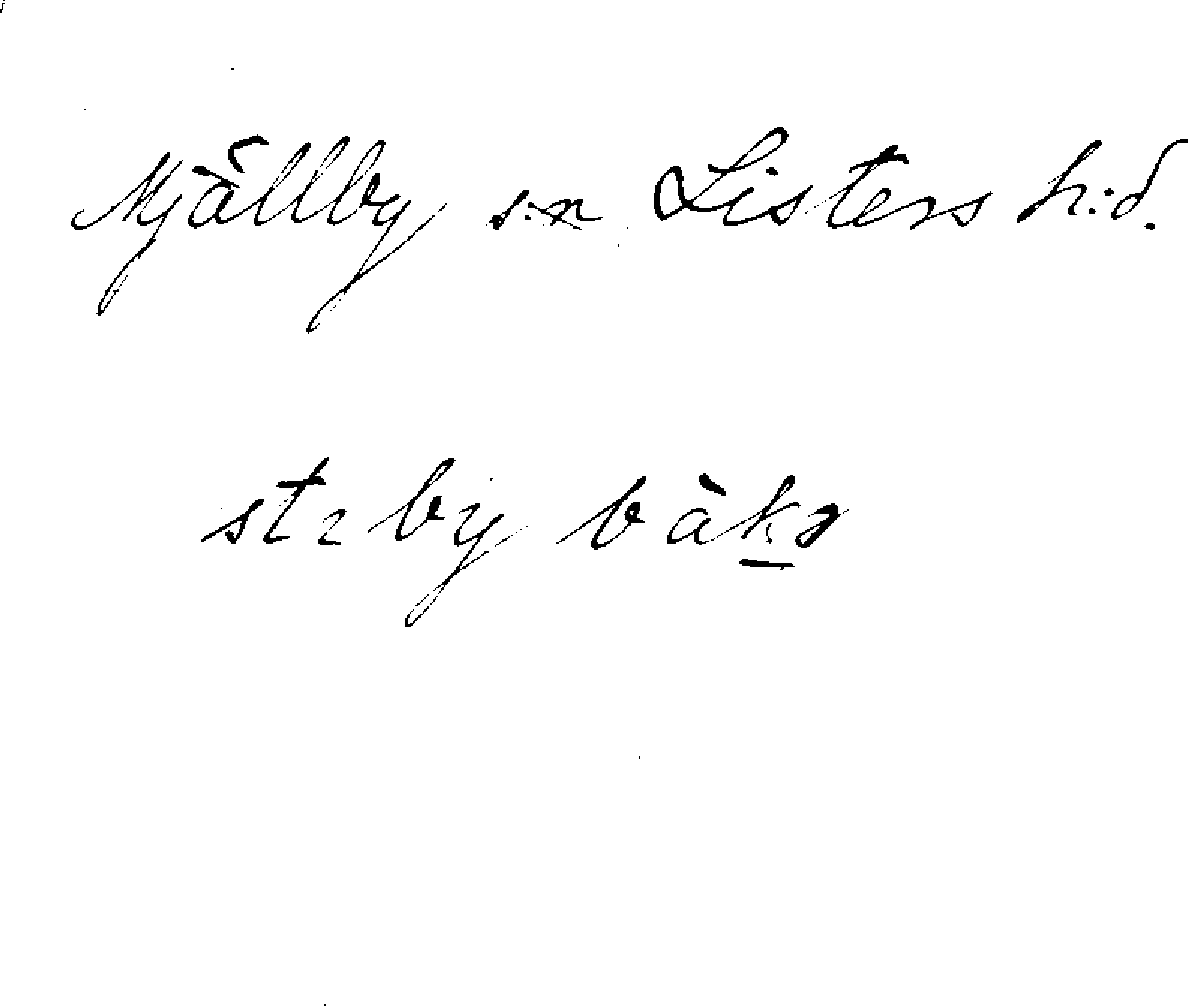 Mjällby s:n Listers h:d.
by bàkə